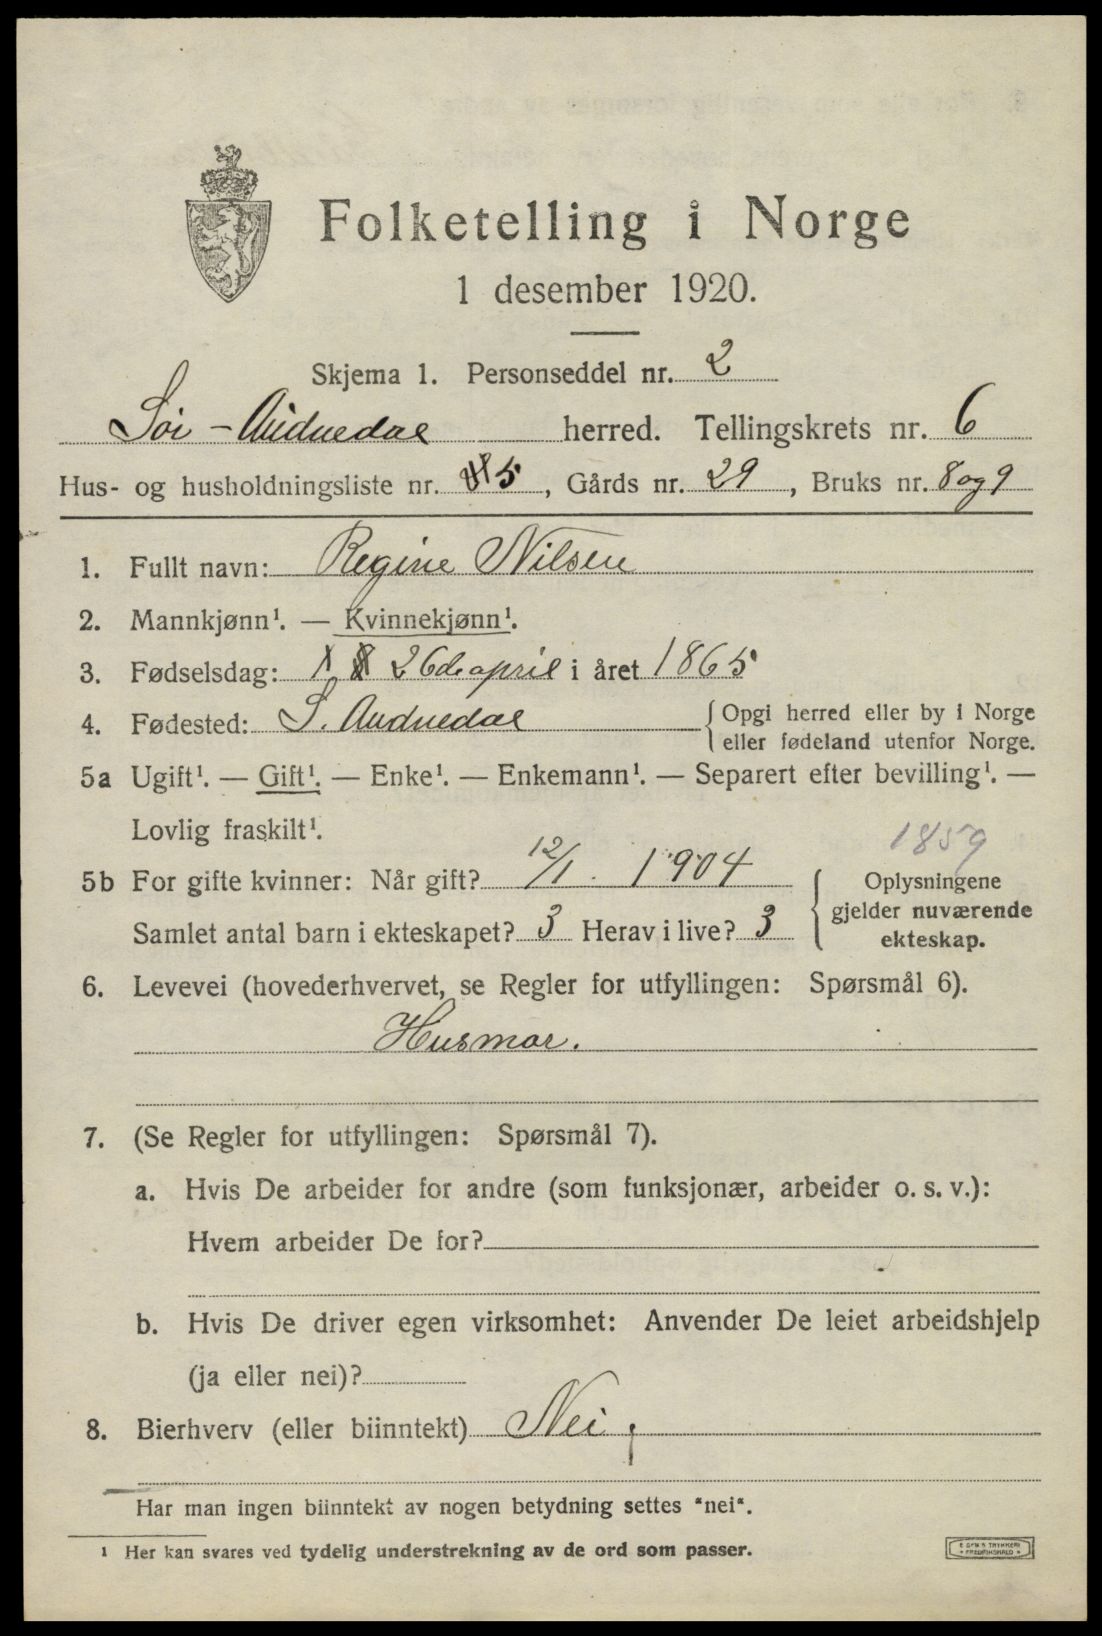 Folketelling i Norge
1 desember 1920.
Skjema 1. Personseddel nr. 2
Sør-Audnedal herred. Tellingskrets nr. 6
Hus- og husholdningsliste nr. 5, Gårds nr. 29, Bruks nr. 8 og 9
1. Fullt navn: Regine Nilsen
2. Mannkjønn¹. — Kvinnekjønn¹.
3. Fødselsdag: 26de april i året 1865
4. Fødested: S. Audnedal {Opgi herred eller by i Norge
eller fødeland utenfor Norge.
5a Ugift¹. — Gift¹. — Enke¹. — Enkemann¹. — Separert efter bevilling¹. —
Lovlig fraskilt¹.
1859
5b For gifte kvinner: Når gift? 12/1. 1904 { Oplysningene
gjelder nuværende
Samlet antal barn i ekteskapet? 3 Herav i live? 3
ekteskap.
6. Levevei (hovederhvervet, se Regler for utfyllingen: Spørsmål 6).
Husmor.
7. (Se Regler for utfyllingen: Spørsmål 7).
a. Hvis De arbeider for andre (som funksjonær, arbeider o. s. v.):
Hvem arbeider De for?
b. Hvis De driver egen virksomhet: Anvender De leiet arbeidshjelp
(ja eller nei)?
8. Bierhverv (eller biinntekt) Nei
Har man ingen biinntekt av nogen betydning settes "nei".
¹ Her kan svares ved tydelig understrekning av de ord som passer.